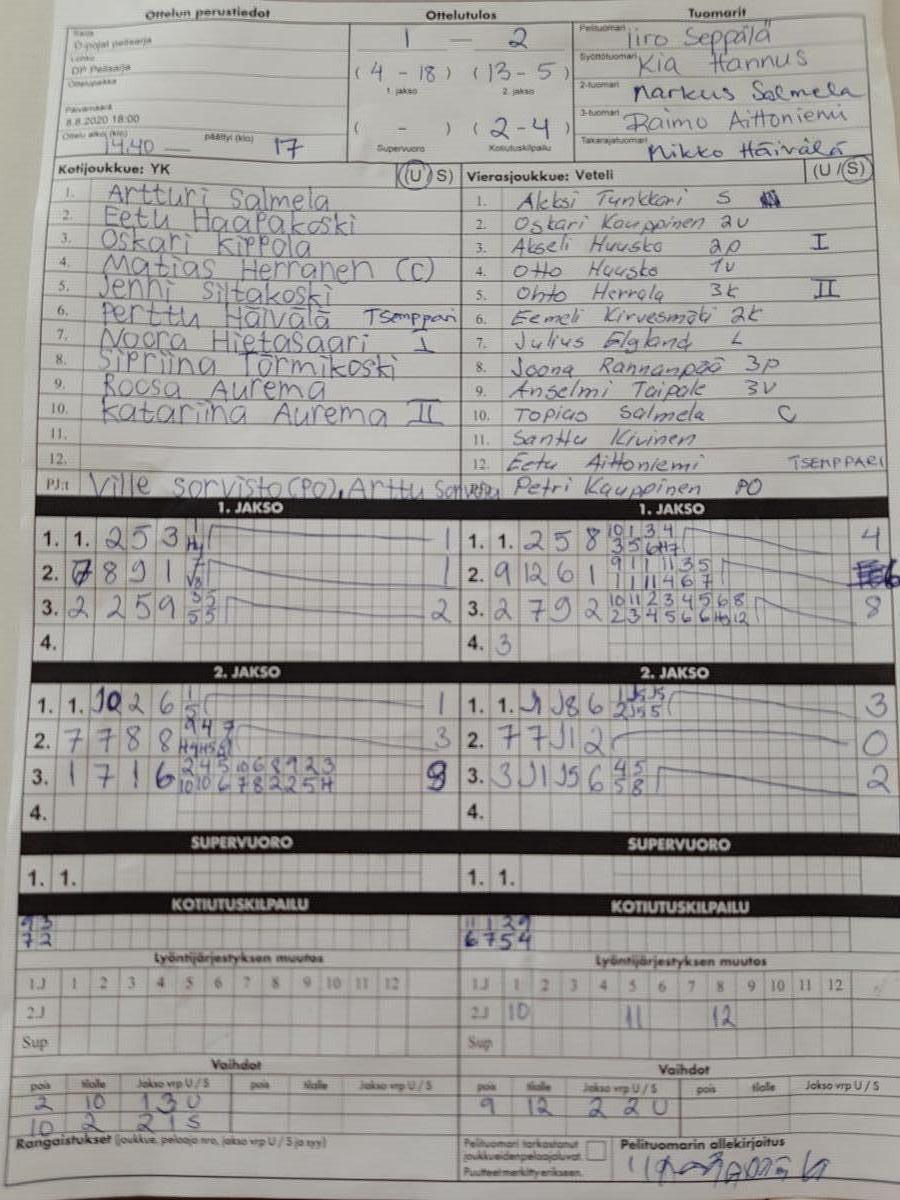 Ottelun perustiedot Ottelutulos Tuomarit
Sarja
D-pojat pelisarja
Lohko
DP Pelisarja
Ottelupaikka
Päivämäärä
8.8.2020 18:00
Ottelu alkoi (klo) 14.40 päättyi (klo) 17
1 — 2
( 4 - 18 ) ( 13 - 5 )
1. jakso 2. jakso
( - ) ( 2 - 4 )
Supervuoro Kotiutuskilpailu
Pelituomari Iiro Seppälä
Syöttötuomari Kia Hannus
2-tuomari Markus Salmela
3-tuomari Raimo Aittoniemi
Takarajatuomari Mikko Häivälä
Kotijoukkue: YK (U/S)
1. Artturi Salmela
2. Eetu Haapakoski
3. Oskari Kippola
4. Matias Herranen (C)
5. Jenni Siltakoski
6. Perttu Häivälä TSEMPPARI
7. Noora Hietasaari I
8. Sipriina Törmikoski
9. Roosa Aurema
10. Katariina Aurema II
11.
12.
PJ:t Ville Sorvisto (PO), Arttu Sorvisto
Vierasjoukkue: Veteli (U/S)
1. Aleksi Tunkkari S
2. Oskari Kauppinen 2v
3. Akseli Huusko 2p I
4. Otto Huusko 1v
5. Ohto Herrala 3k II
6. Eemeli Kirvesmäki 2k
7. Julius Elgland L
8. Joona Rannanpää 3p
9. Anselmi Taipale 3v
10. Topias Salmela C
11. Santtu Kivinen
12. Eetu Aittoniemi TSEMPPARI
Petri Kauppinen PO
1. JAKSO 1. JAKSO
1. 1. 2 5 3 1
2. 7 8 9 1 1
3. 2 2 5 9 2
4.
1. 1. 2 5 8 4
2. 9 12 6 1 6
3. 2 7 9 2 8
4. 3
2. JAKSO 2. JAKSO
1. 1. 10 2 6 1
2. 7 7 8 8 3
3. 1 7 1 6 9
4.
1. 1. 3
2. 7 7 0
3. 3 2
4.
SUPERVUORO SUPERVUORO
1. 1. 1. 1.
KOTIUTUSKILPAILU KOTIUTUSKILPAILU
9 3
7 2
11 1 2 9
6 7 5 4
Lyöntijärjestyksen muutos Lyöntijärjestyksen muutos
1.J 1 2 3 4 5 6 7 8 9 10 11 12 1.J 1 2 3 4 5 6 7 8 9 10 11 12
2.J 2.J 10 11 12
Sup Sup
Vaihdot Vaihdot
pois tilalle Jakso vrp U / S pois tilalle Jakso vrp U / S pois tilalle Jakso vrp U / S pois tilalle Jakso vrp U / S
2 10 1 3 U 9 12 2 2 U
10 2 2 1 S
Rangaistukset (joukkue, pelaaja nro, jakso vrp U / S ja syy)
Pelituomari tarkastanut
joukkueidenpelaajaluvat.
Puutteet merkitty erikseen.
Pelituomarin allekirjoitus